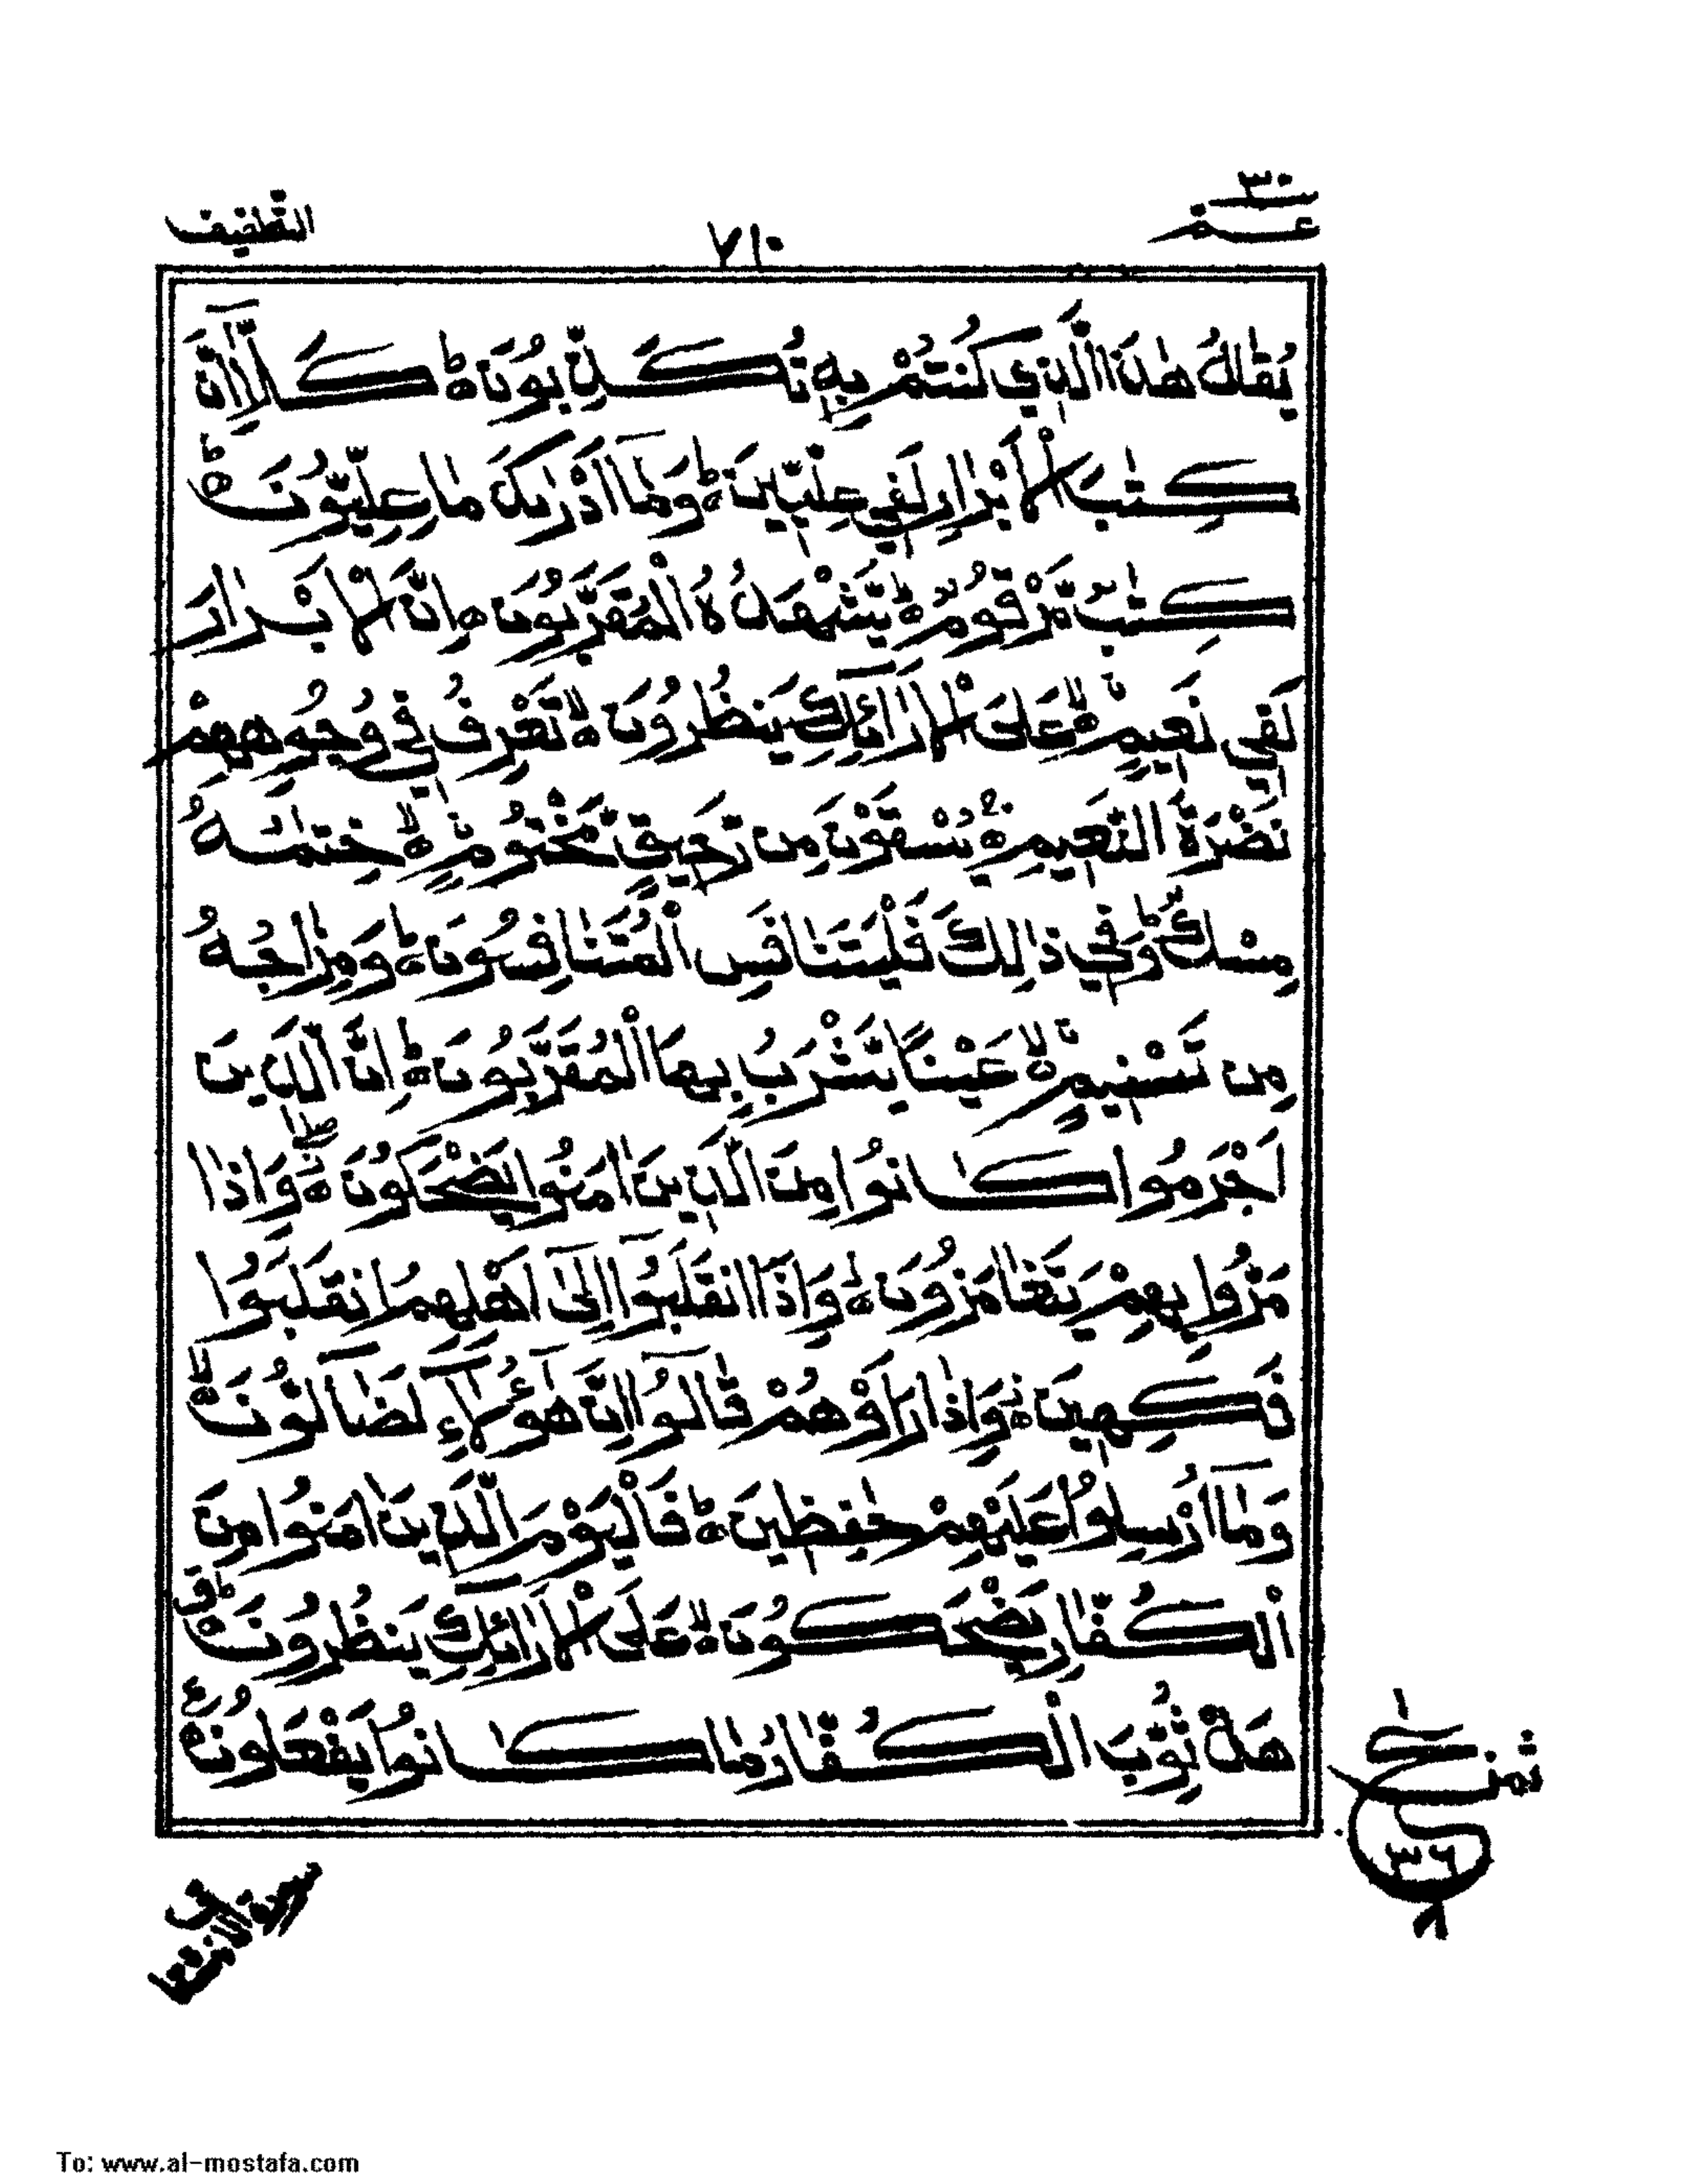 عم ٣٠
٧١٠
التطفيف
يُقَالُ هٰذَا الَّذِي كُنتُمْ بِهٖ تُكَذِّبُونَ ؕ كَلَّآ اِنَّ
كِتٰبَ الْاَبْرَارِ لَفِي عِلِّيِّينَ ؕ وَمَآ اَدْرٰىكَ مَا عِلِّيُّونَ ؕ
كِتٰبٌ مَّرْقُومٌ ؕ يَّشْهَدُهُ الْمُقَرَّبُونَ ۝ اِنَّ الْاَبْرَارَ
لَفِي نَعِيمٍ ۙ عَلَى الْاَرَآئِكِ يَنظُرُونَ ۙ تَعْرِفُ فِي وُجُوهِهِمْ
نَضْرَةَ النَّعِيمِ ۚ يُسْقَوْنَ مِن رَّحِيقٍ مَّخْتُومٍ ۙ خِتٰمُهٗ
مِسْكٌ ؕ وَفِي ذٰلِكَ فَلْيَتَنَافَسِ الْمُتَنَافِسُونَ ؕ وَمِزَاجُهٗ
مِن تَسْنِيمٍ ۙ عَيْنًا يَّشْرَبُ بِهَا الْمُقَرَّبُونَ ؕ اِنَّ الَّذِينَ
اَجْرَمُوا كَانُوا مِنَ الَّذِينَ اٰمَنُوا يَضْحَكُونَ ۝ وَاِذَا
مَرُّوا بِهِمْ يَتَغَامَزُونَ ۝ وَاِذَا انقَلَبُوٓا اِلٰٓى اَهْلِهِمُ انقَلَبُوا
فَكِهِينَ ۝ وَاِذَا رَاَوْهُمْ قَالُوٓا اِنَّ هٰٓؤُلَآءِ لَضَآلُّونَ ۙ
وَمَآ اُرْسِلُوا عَلَيْهِمْ حٰفِظِينَ ؕ فَالْيَوْمَ الَّذِينَ اٰمَنُوا مِنَ
الْكُفَّارِ يَضْحَكُونَ ۙ عَلَى الْاَرَآئِكِ يَنظُرُونَ ؕ
هَلْ ثُوِّبَ الْكُفَّارُ مَا كَانُوا يَفْعَلُونَ ۝
ثمن
٣٦
٨
To: www.al-mostafa.com